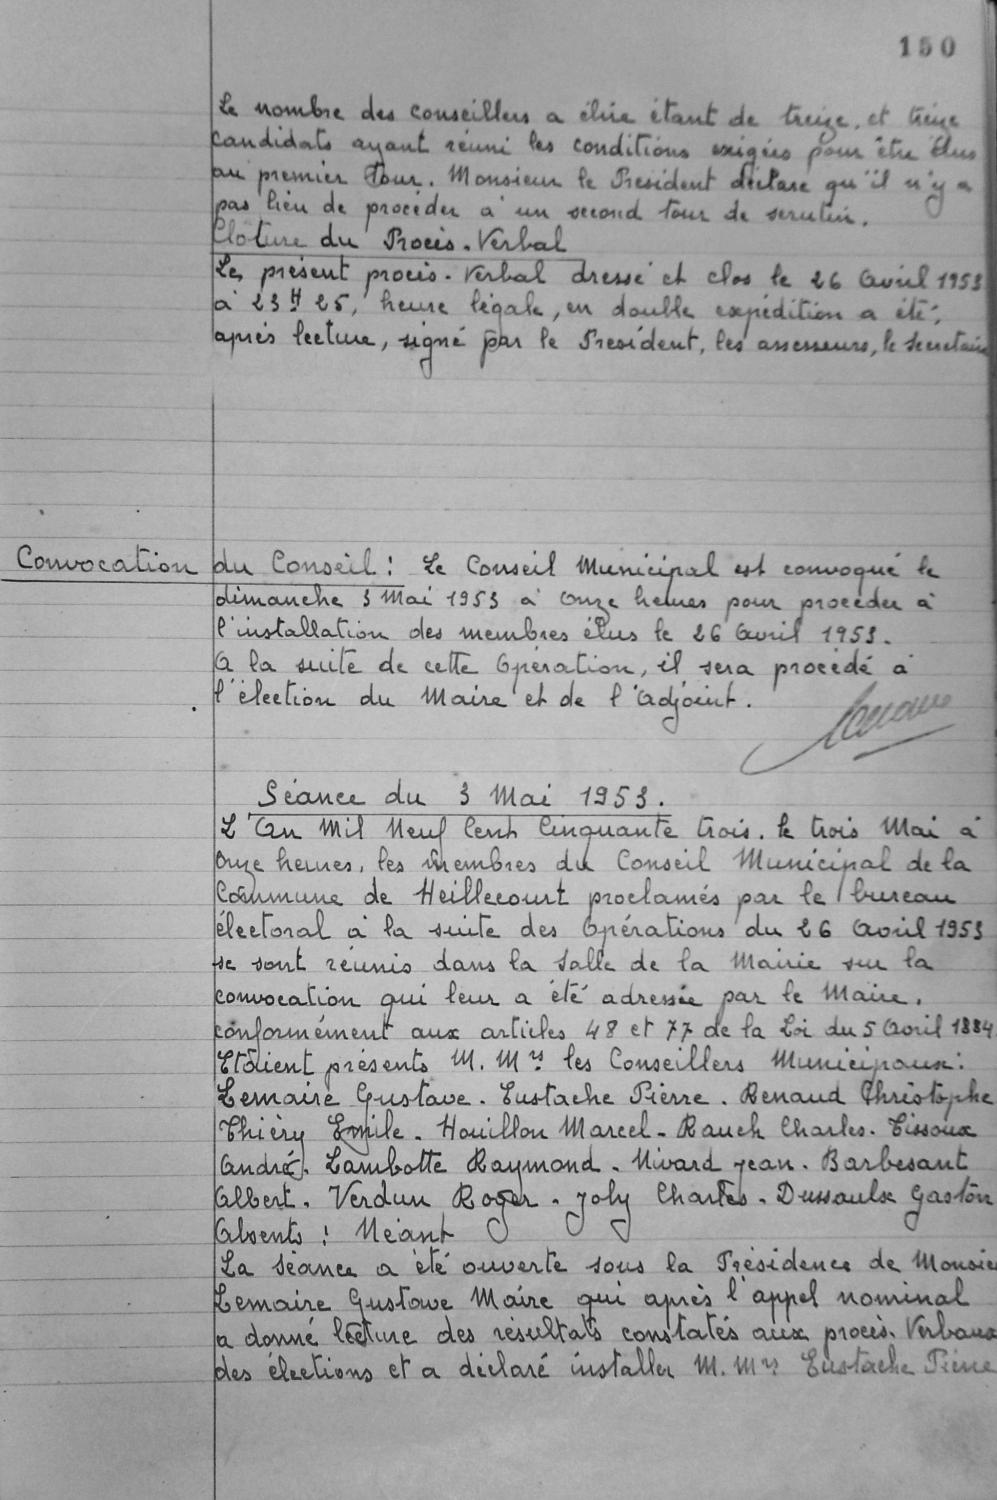 150
Le nombre des conseillers a élire étant de treize, et treize
candidats ayant réuni les conditions exigées pour être élus
au premier Tour. Monsieur le Président déclare qu'il n'y a
pas lieu de procéder à un second tour de scrutin.
Clôture du Procès-Verbal
Le présent procès-Verbal dressé et clos le 26 Avril 1953
à 23H 25, heure légale, en double expédition a été,
après lecture, signé par le Président, les assesseurs, le Secrétaire
Convocation du Conseil: Le Conseil Municipal est convoqué le
dimanche 3 Mai 1953 à Onze heures pour procéder à
l'installation des membres élus le 26 Avril 1953.
A la suite de cette Opération, il sera procédé à
l'élection du Maire et de l'Adjoint.
Séance du 3 Mai 1953.
L'An Mil Neuf Cent Cinquante trois, le trois Mai à
Onze heures, les membres du Conseil Municipal de la
Commune de Heillecourt proclamés par le bureau
électoral à la suite des Opérations du 26 Avril 1953
se sont réunis dans la Salle de la Mairie sur la
convocation qui leur a été adressée par le Maire,
conformément aux articles 48 et 77 de la Loi du 5 Avril 1884
Etaient présents M. Mrs les Conseillers Municipaux:
Lemaire Gustave. Eustache Pierre. Renaud Christophe
Thièry Emile. Houillon Marcel. Rauch Charles. Tissoux
André. Lambotte Raymond. Nivard Jean. Barbesant
Albert. Verdun Roger. Joly Charles. Dussaulx Gaston
Absents: Néant
La Séance a été ouverte sous la Présidence de Monsieu
Lemaire Gustave Maire qui après l'appel nominal
a donné lecture des résultats constatés aux procès-Verbaux
des élections et a déclaré installer M. Mrs Eustache Pierre